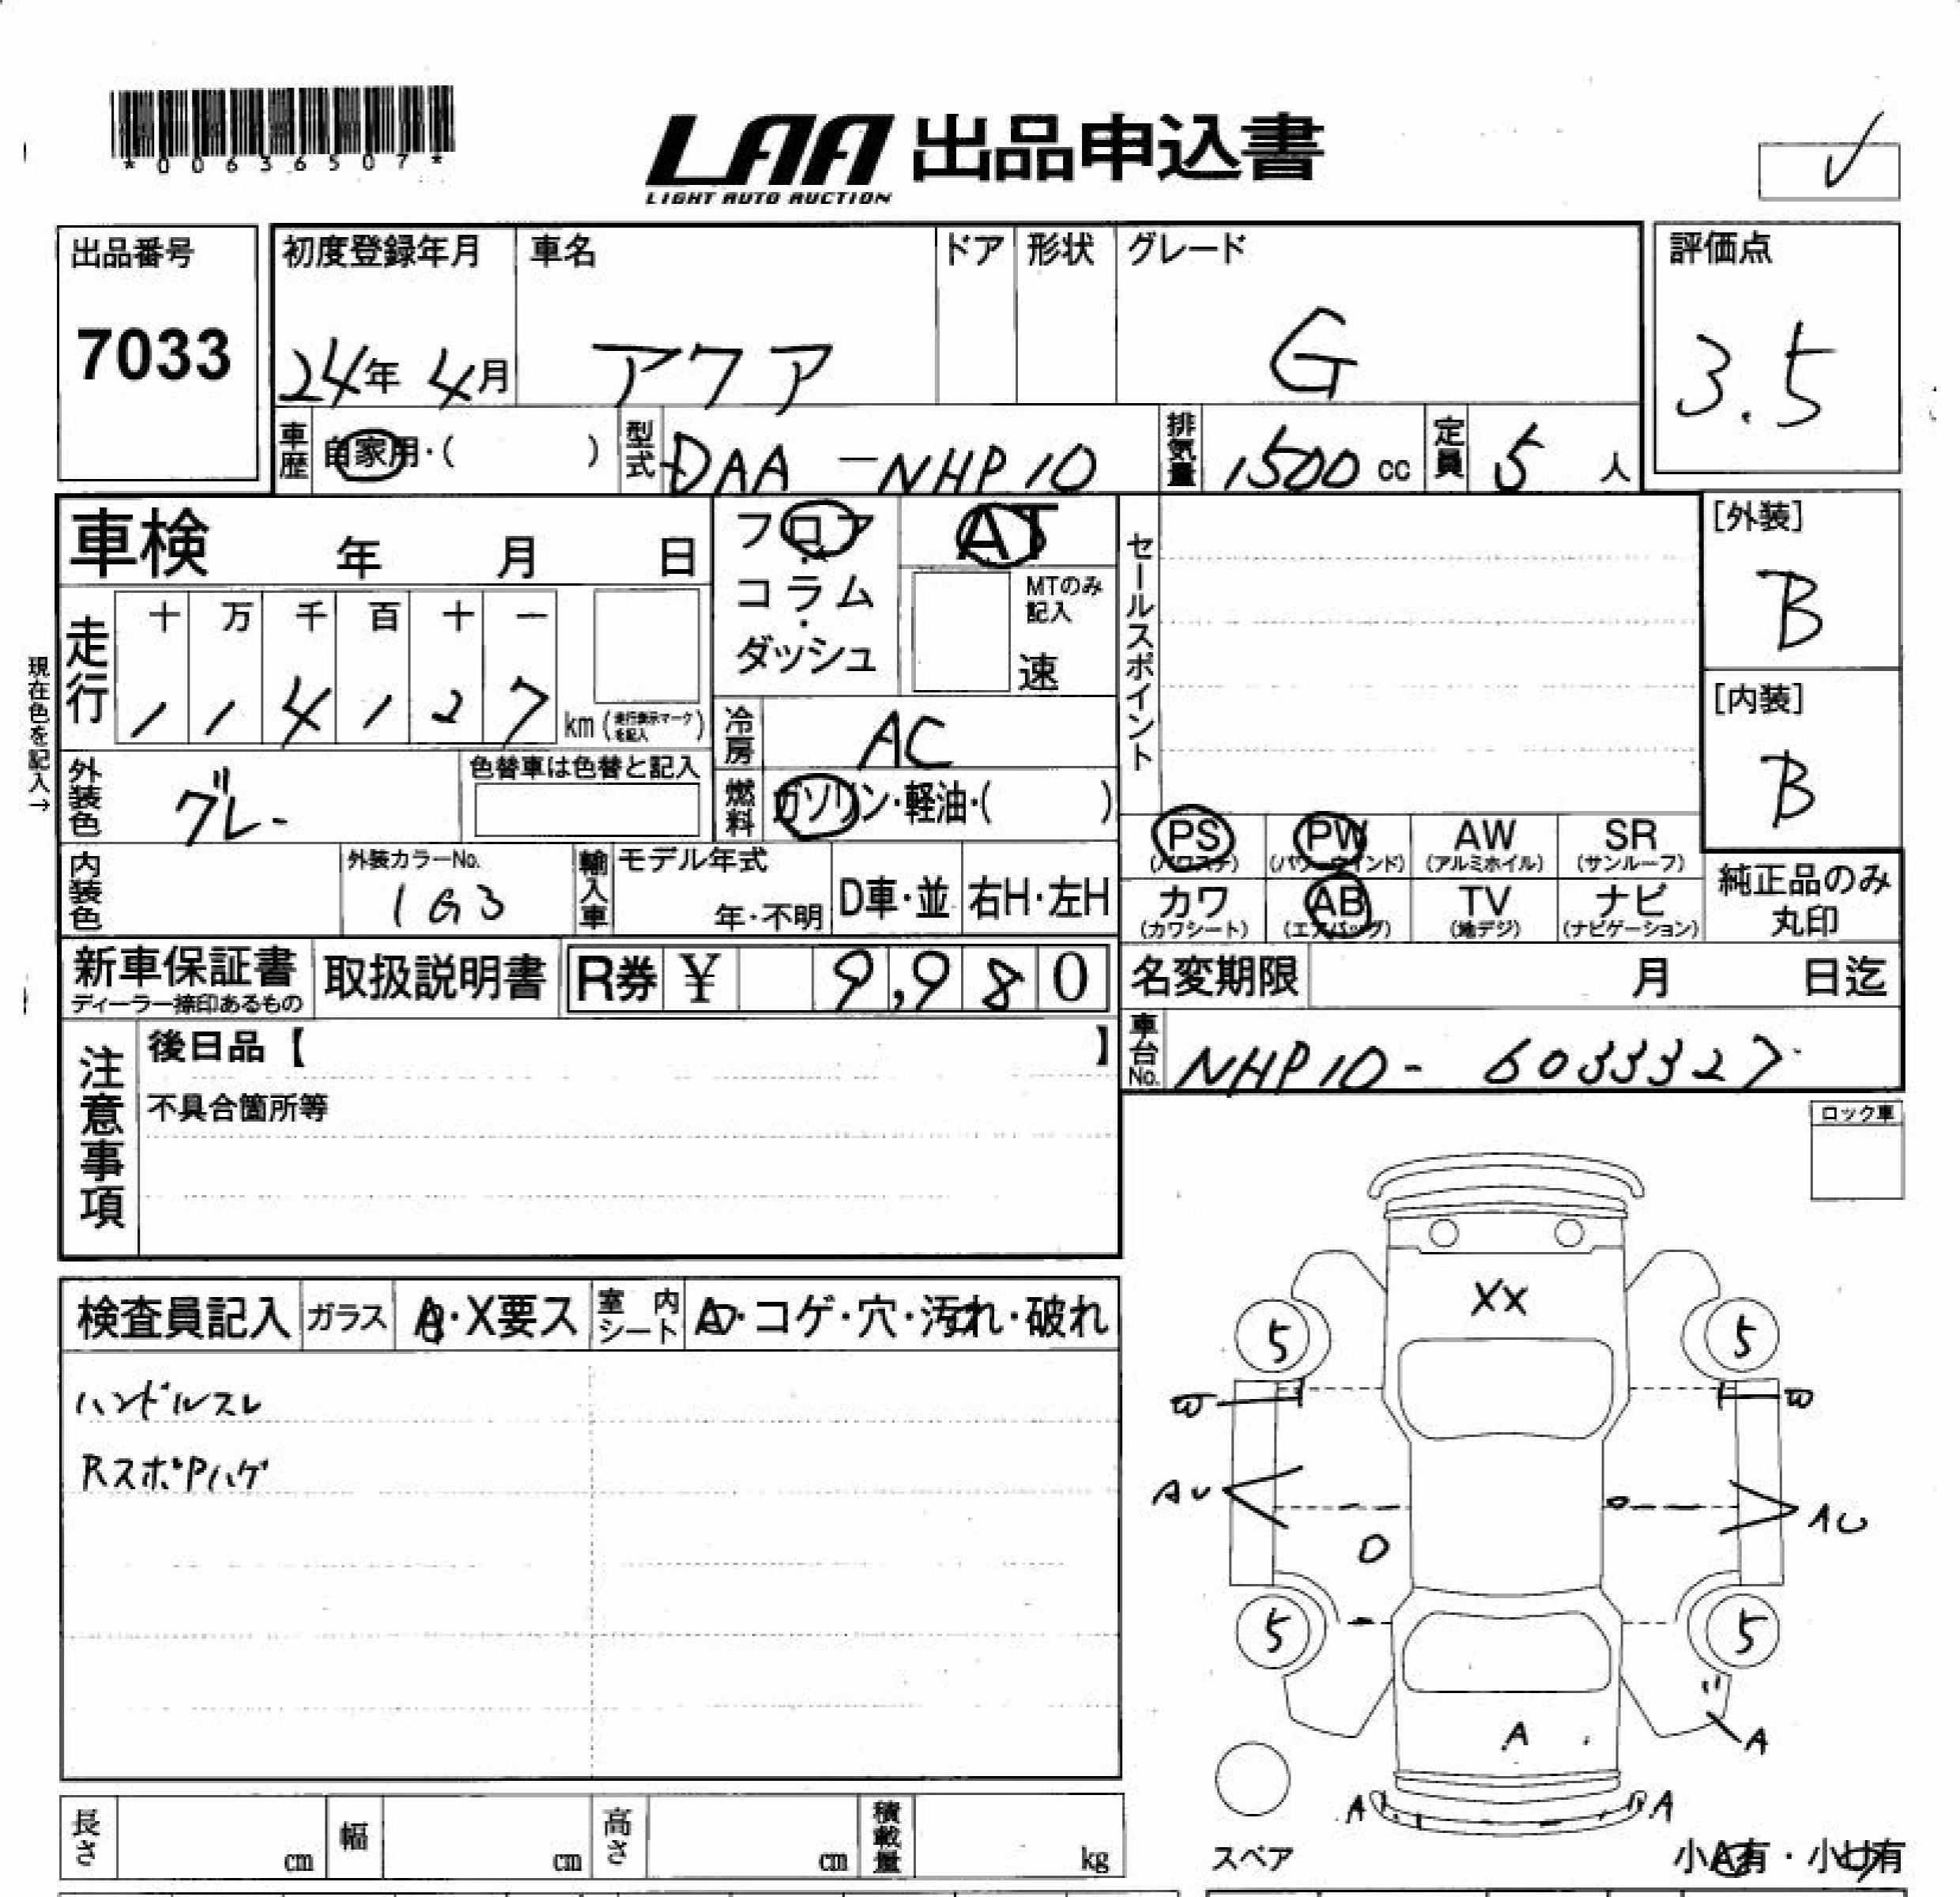 *00636507*
LAA 出品申込書
LIGHT AUTO AUCTION
出品番号 初度登録年月 車名 ドア 形状 グレード 評価点
7033 24年 4月 アクア G 3.5
車歴 自家用・( ) 型式 DAA-NHP10 排気量 1500 cc 定員 5 人
車検 年 月 日
フロア・コラム・ダッシュ
AT
MTのみ記入
速
セールスポイント
[外装]
B
[内装]
B
現在色を記入→
走行 十 万 千 百 十 一
1 1 4 1 2 7 km (走行表示マークを記入)
冷房 AC
外装色 グレー 色替車は色替と記入
燃料 ガソリン・軽油・( )
PS (パワステ) PW (パワーウインド) AW (アルミホイル) SR (サンルーフ)
カワ (カワシート) AB (エアバッグ) TV (地デジ) ナビ (ナビゲーション)
純正品のみ丸印
内装色 外装カラーNo. 1G3 輸入車 モデル年式 年・不明 D車・並 右H・左H
新車保証書 ディーラー捺印あるもの 取扱説明書 R券 ¥ 9,980
名変期限 月 日迄
車台No. NHP10-6033327
注意事項
後日品【 】
不具合箇所等
ロック車
検査員記入 ガラス A・X要ス 室内シート A・コゲ・穴・汚れ・破れ
ハンドルスレ
RスポPハゲ
XX
5 5
W W
AU AU
5 5
A
A
A A
スペア
小A有・小U有
長さ cm 幅 cm 高さ cm 積載量 kg